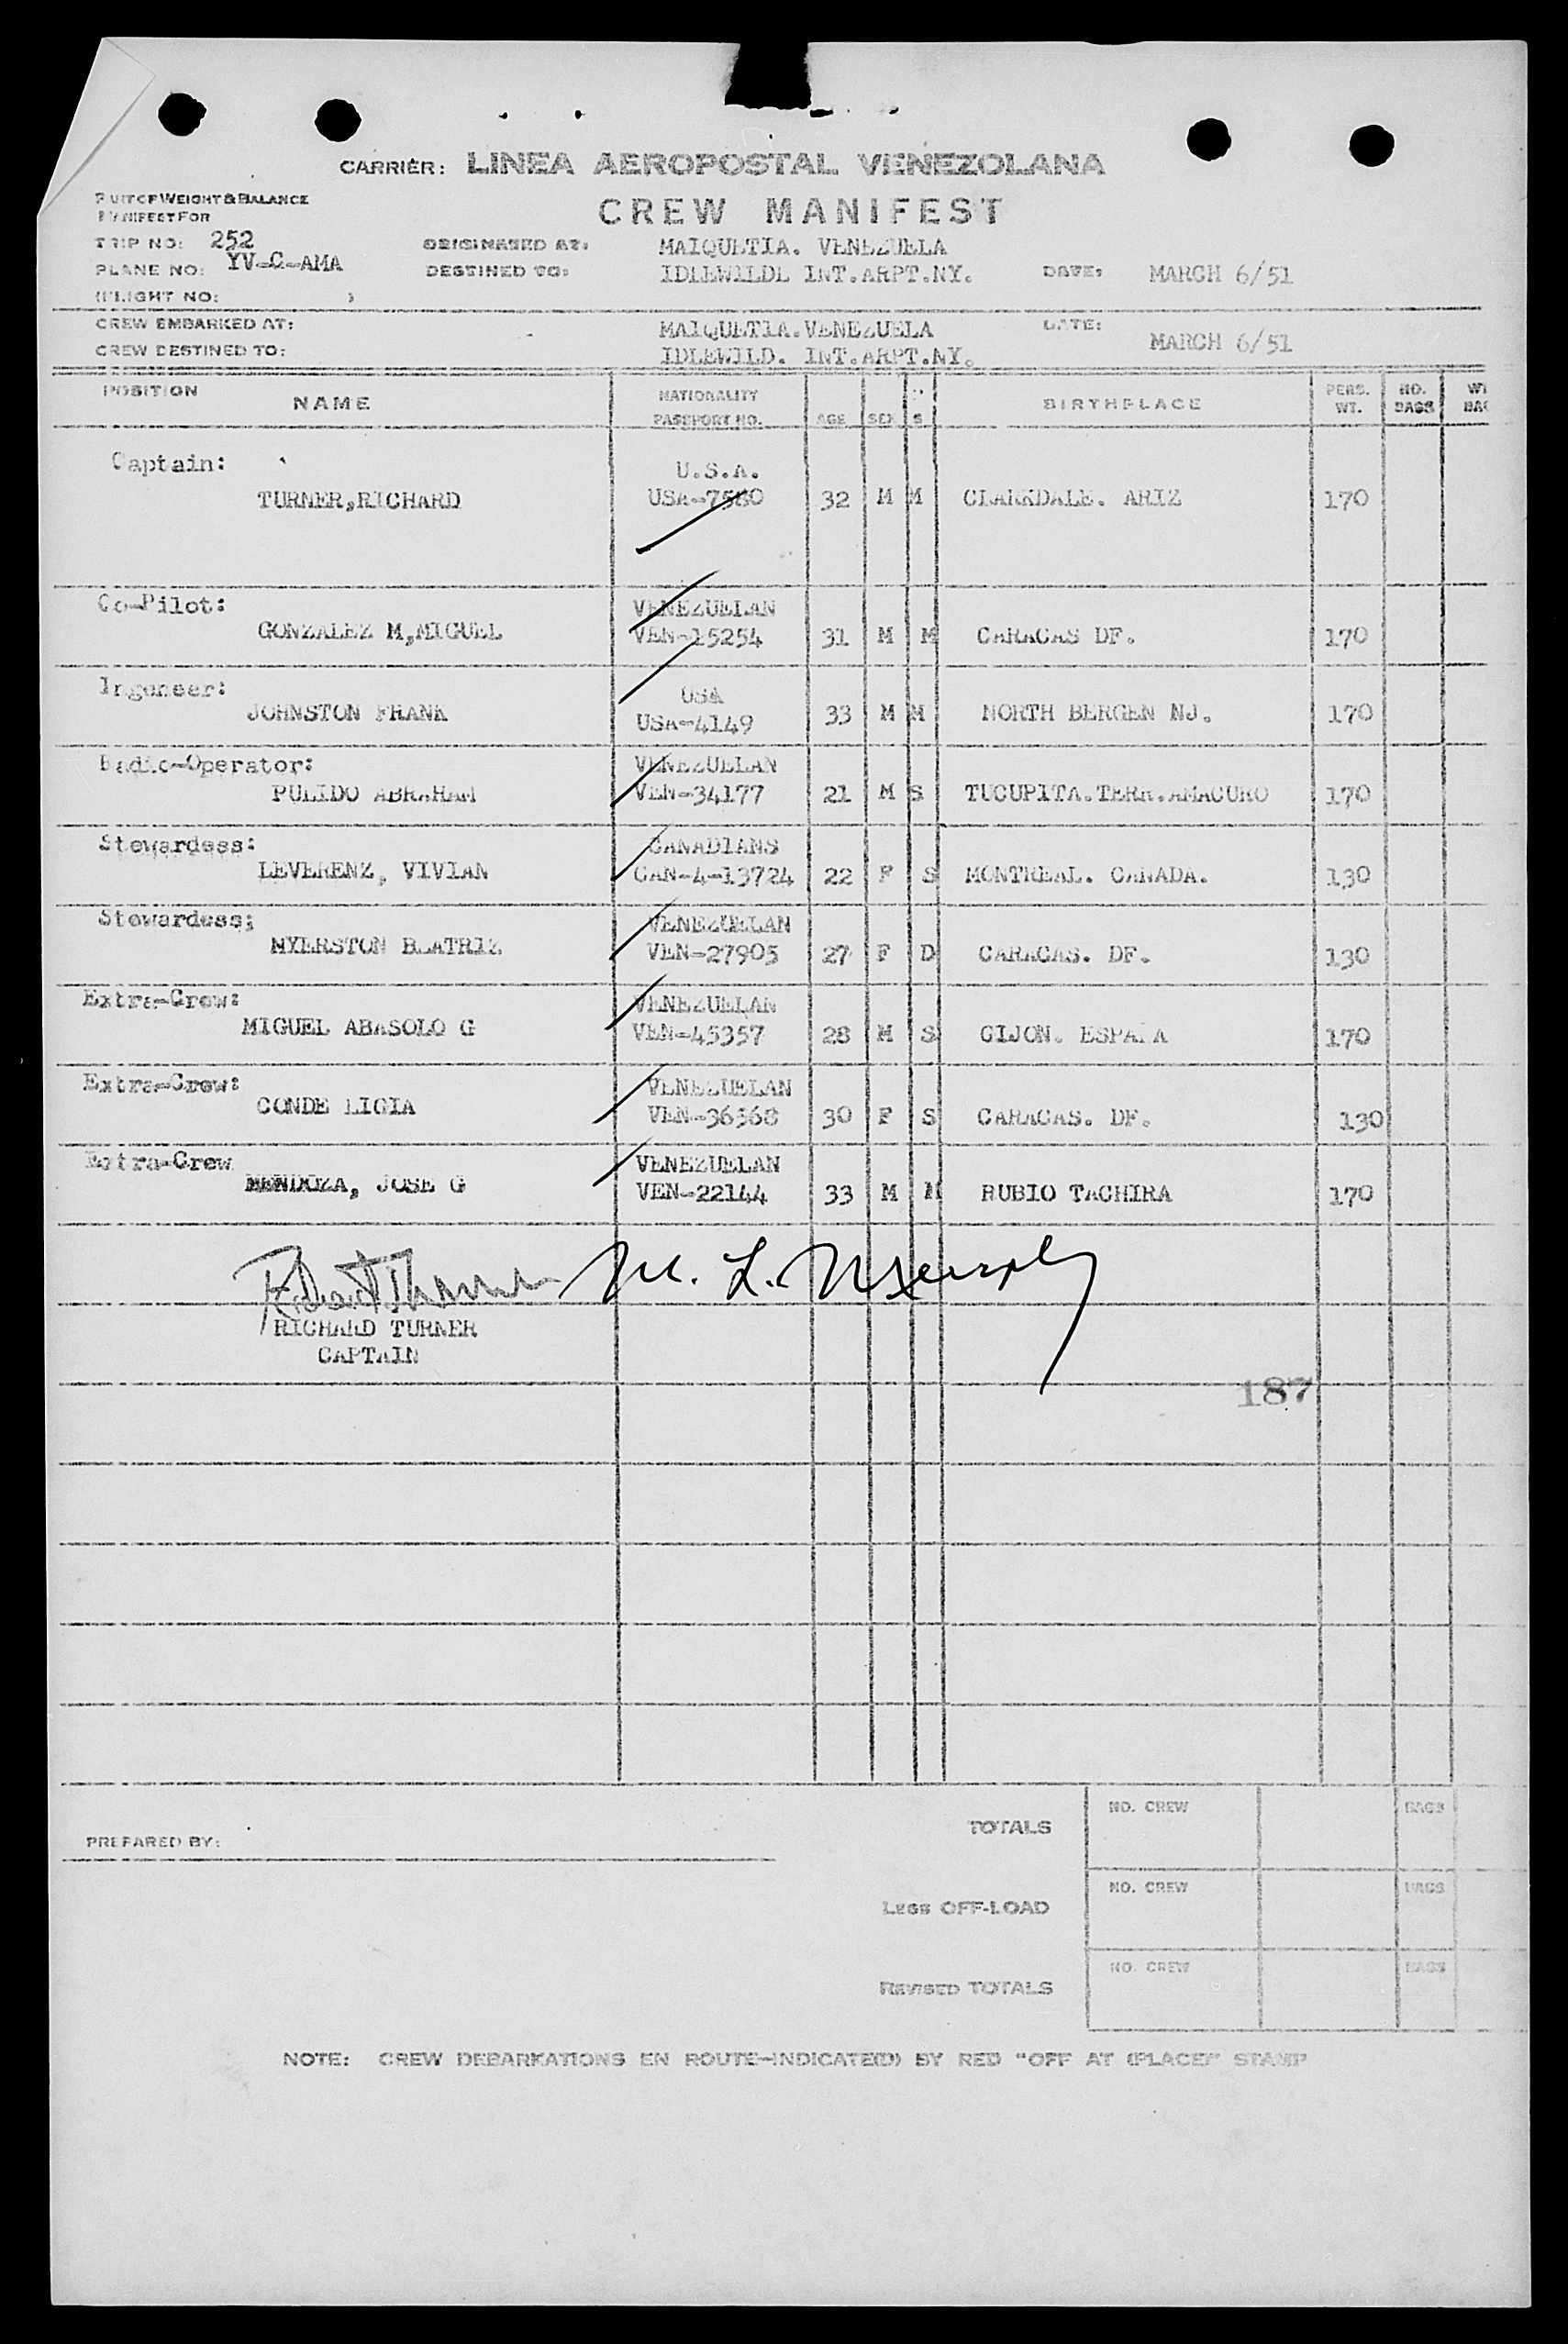 CARRIER: LINEA AEROPOSTAL VENEZOLANA
WEIGHT & BALANCE
MANIFEST FOR
CREW MANIFEST
TRIP NO: 252 ORIGINATED AT: MAIQUETIA. VENEZUELA
PLANE NO: YV-C-AMA DESTINED TO: IDLEWILDE INT.ARPT.NY. DATE: MARCH 6/51
(FLIGHT NO: )
CREW EMBARKED AT: MAIQUETIA.VENEZUELA DATE: MARCH 6/51
CREW DESTINED TO: IDLEWILD. INT.ARPT.NY.
POSITION NAME NATIONALITY PASSPORT NO. AGE SEX S BIRTHPLACE PERS. WT. NO. BAGS
Captain: U.S.A.
TURNER,RICHARD USA-7580 32 M M CLARKDALE. ARIZ 170
Co-Pilot: VENEZUELAN
GONZALEZ M,MIGUEL VEN-15254 31 M M CARACAS DF. 170
Ingeneer: USA
JOHNSTON FRANK USA-4149 33 M M NORTH BERGEN NJ. 170
Radio-Operator: VENEZUELAN
PULIDO ABRAHAM VEN-34177 21 M S TUCUPITA.TERR.AMACURO 170
Stewardess: CANADIANS
LEVERENZ, VIVIAN CAN-4-13724 22 F S MONTREAL. CANADA. 130
Stewardess; VENEZUELAN
MYERSTON BEATRIZ VEN-27905 27 F D CARACAS. DF. 130
Extra-Crew: VENEZUELAN
MIGUEL ABASOLO G VEN-45357 28 M S GIJON. ESPAÑA 170
Extra-Crew: VENEZUELAN
CONDE LIGIA VEN-36368 30 F S CARACAS. DF. 130
Extra-Crew VENEZUELAN
MENDOZA, JOSE G VEN-22144 33 M M RUBIO TACHIRA 170
M. L.
RICHARD TURNER
CAPTAIN
187
TOTALS NO. CREW BAGS
PREPARED BY:
LESS OFF-LOAD NO. CREW BAGS
REVISED TOTALS NO. CREW BAGS
NOTE: CREW DEBARKATIONS EN ROUTE-INDICATE(D) BY RED "OFF AT (PLACE)" STAMP